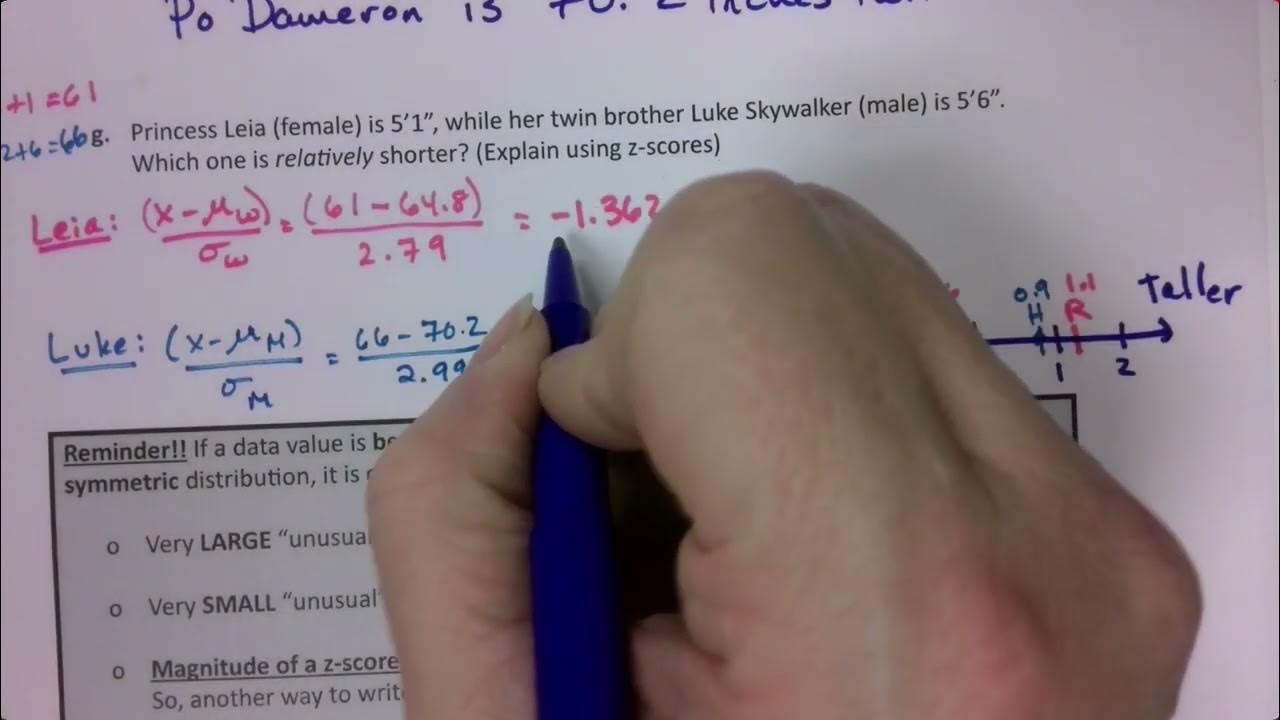 Po Dameron is 70.2 inches
+1 = 61
2+6 = 66
g. Princess Leia (female) is 5’1”, while her twin brother Luke Skywalker (male) is 5’6”.
Which one is relatively shorter? (Explain using z-scores)
Leia: (x-μw) / σw = (61-64.8) / 2.79 = -1.362
Luke: (x-μM) / σM = 66-70.2 / 2.99
0.9 1.1 Taller
H R
1 2
Reminder!! If a data value is
symmetric distribution, it is
o Very LARGE “unusual
o Very SMALL “unusual”
o Magnitude of a z-score
So, another way to